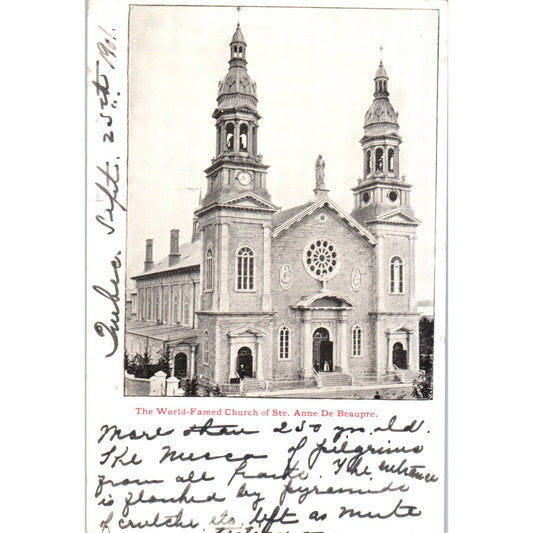 Quebec. Sept. 25th 1901.
The World-Famed Church of Ste. Anne De Beaupre.
More than 250 yrs. old.
The Mecca of pilgrims
from all parts. The entrance
is flanked by pyramids
of crutches etc. left as mute